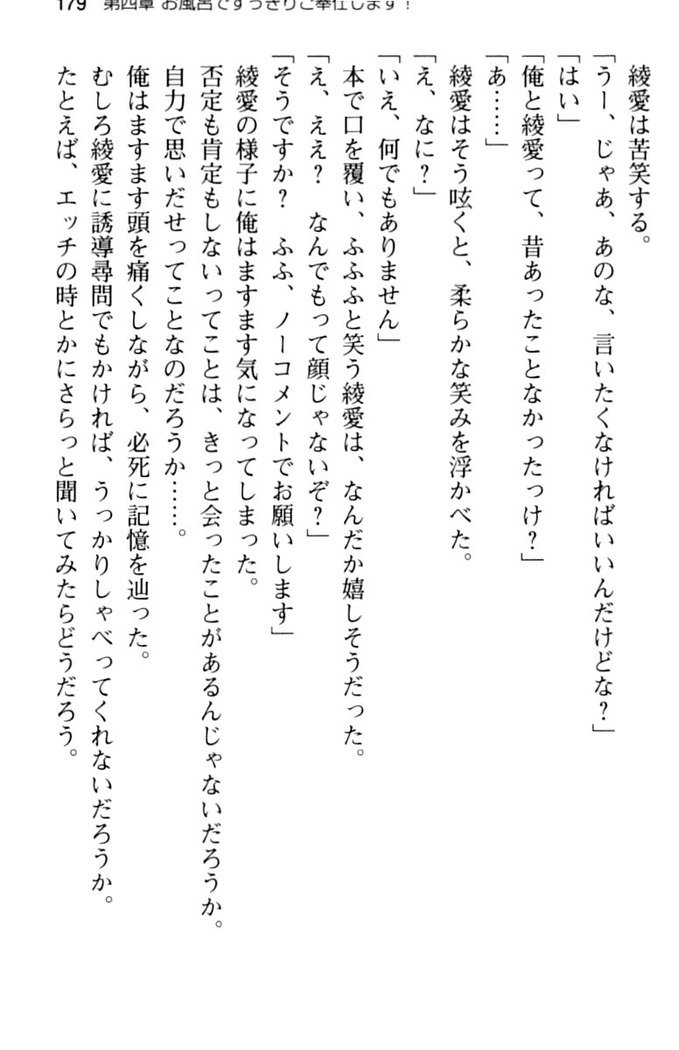 179 第四章 お風呂ですっきりご奉仕します！
綾愛は苦笑する。
「うー、じゃあ、あのな、言いたくなければいいんだけどな？」
「はい」
「俺と綾愛って、昔あったことなかったっけ？」
「あ……」
綾愛はそう呟くと、柔らかな笑みを浮かべた。
「え、なに？」
「いえ、何でもありません」
本で口を覆い、ふふふと笑う綾愛は、なんだか嬉しそうだった。
「え、ええ？　なんでもって顔じゃないぞ？」
「そうですか？　ふふ、ノーコメントでお願いします」
綾愛の様子に俺はますます気になってしまった。
否定も肯定もしないってことは、きっと会ったことがあるんじゃないだろうか。
自力で思いだせってことなのだろうか……。
俺はますます頭を痛くしながら、必死に記憶を辿った。
むしろ綾愛に誘導尋問でもかければ、うっかりしゃべってくれないだろうか。
たとえば、エッチの時とかにさらっと聞いてみたらどうだろう。